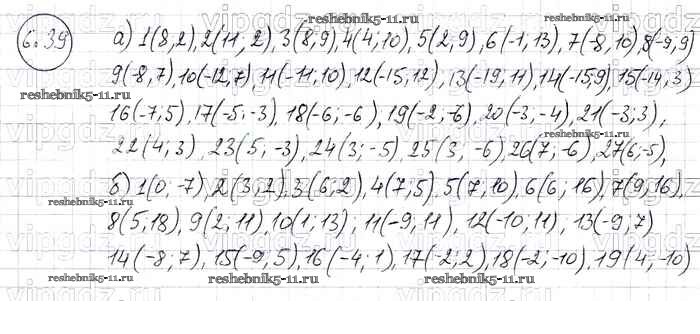 6.39 а) 1(8,2), 2(11, 2), 3(8,9), 4(4,10), 5(2,9), 6(-1,13), 7(-8,10), 8(-9,9)
9(-8,7), 10(-12,7), 11(-11,10), 12(-15,12), 13(-19,11), 14(-15,9), 15(-14,3)
16(-7;5), 17(-5;-3), 18(-6;-6), 19(-2;-6), 20(-3;-4), 21(-3;3),
22(4;3), 23(5;-3), 24(3;-5), 25(3; -6), 26(7;-6), 27(6;-5),
б) 1(0; -7), 2(3,2), 3(6;2), 4(7;5), 5(7,10), 6(6; 16), 7(9,16),
8(5,18), 9(2; 11), 10(1;13); 11(-9,11), 12(-10,11), 13(-9,7)
14(-8,7), 15(-9,5), 16(-4;1), 17(-2;2), 18(-2;-10), 19(4,-10)
www.reshebnik5-11.ru
reshebnik5-11.ru
reshebnik5-11.ru
reshebnik5-11.ru
reshebnik5-11.ru
reshebnik5-11.ru
reshebnik5-11.ru